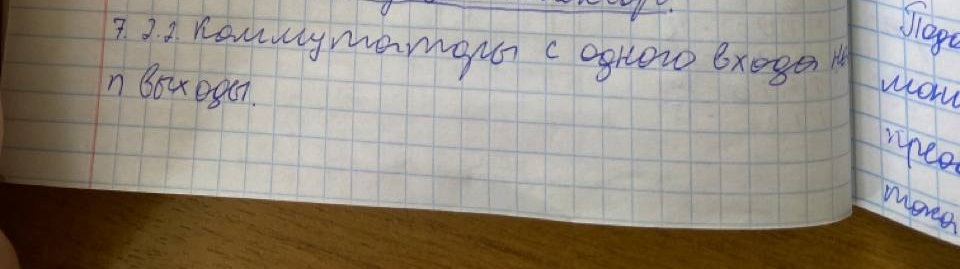 7.2.2. Коммутаторы с одного входа на
n выходы.
Пода
мож
прео
тока